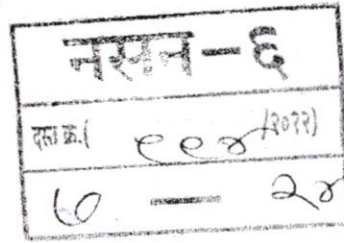 नसन-६
दस्त क्र.( ९९४/२०२२)
७ — २४